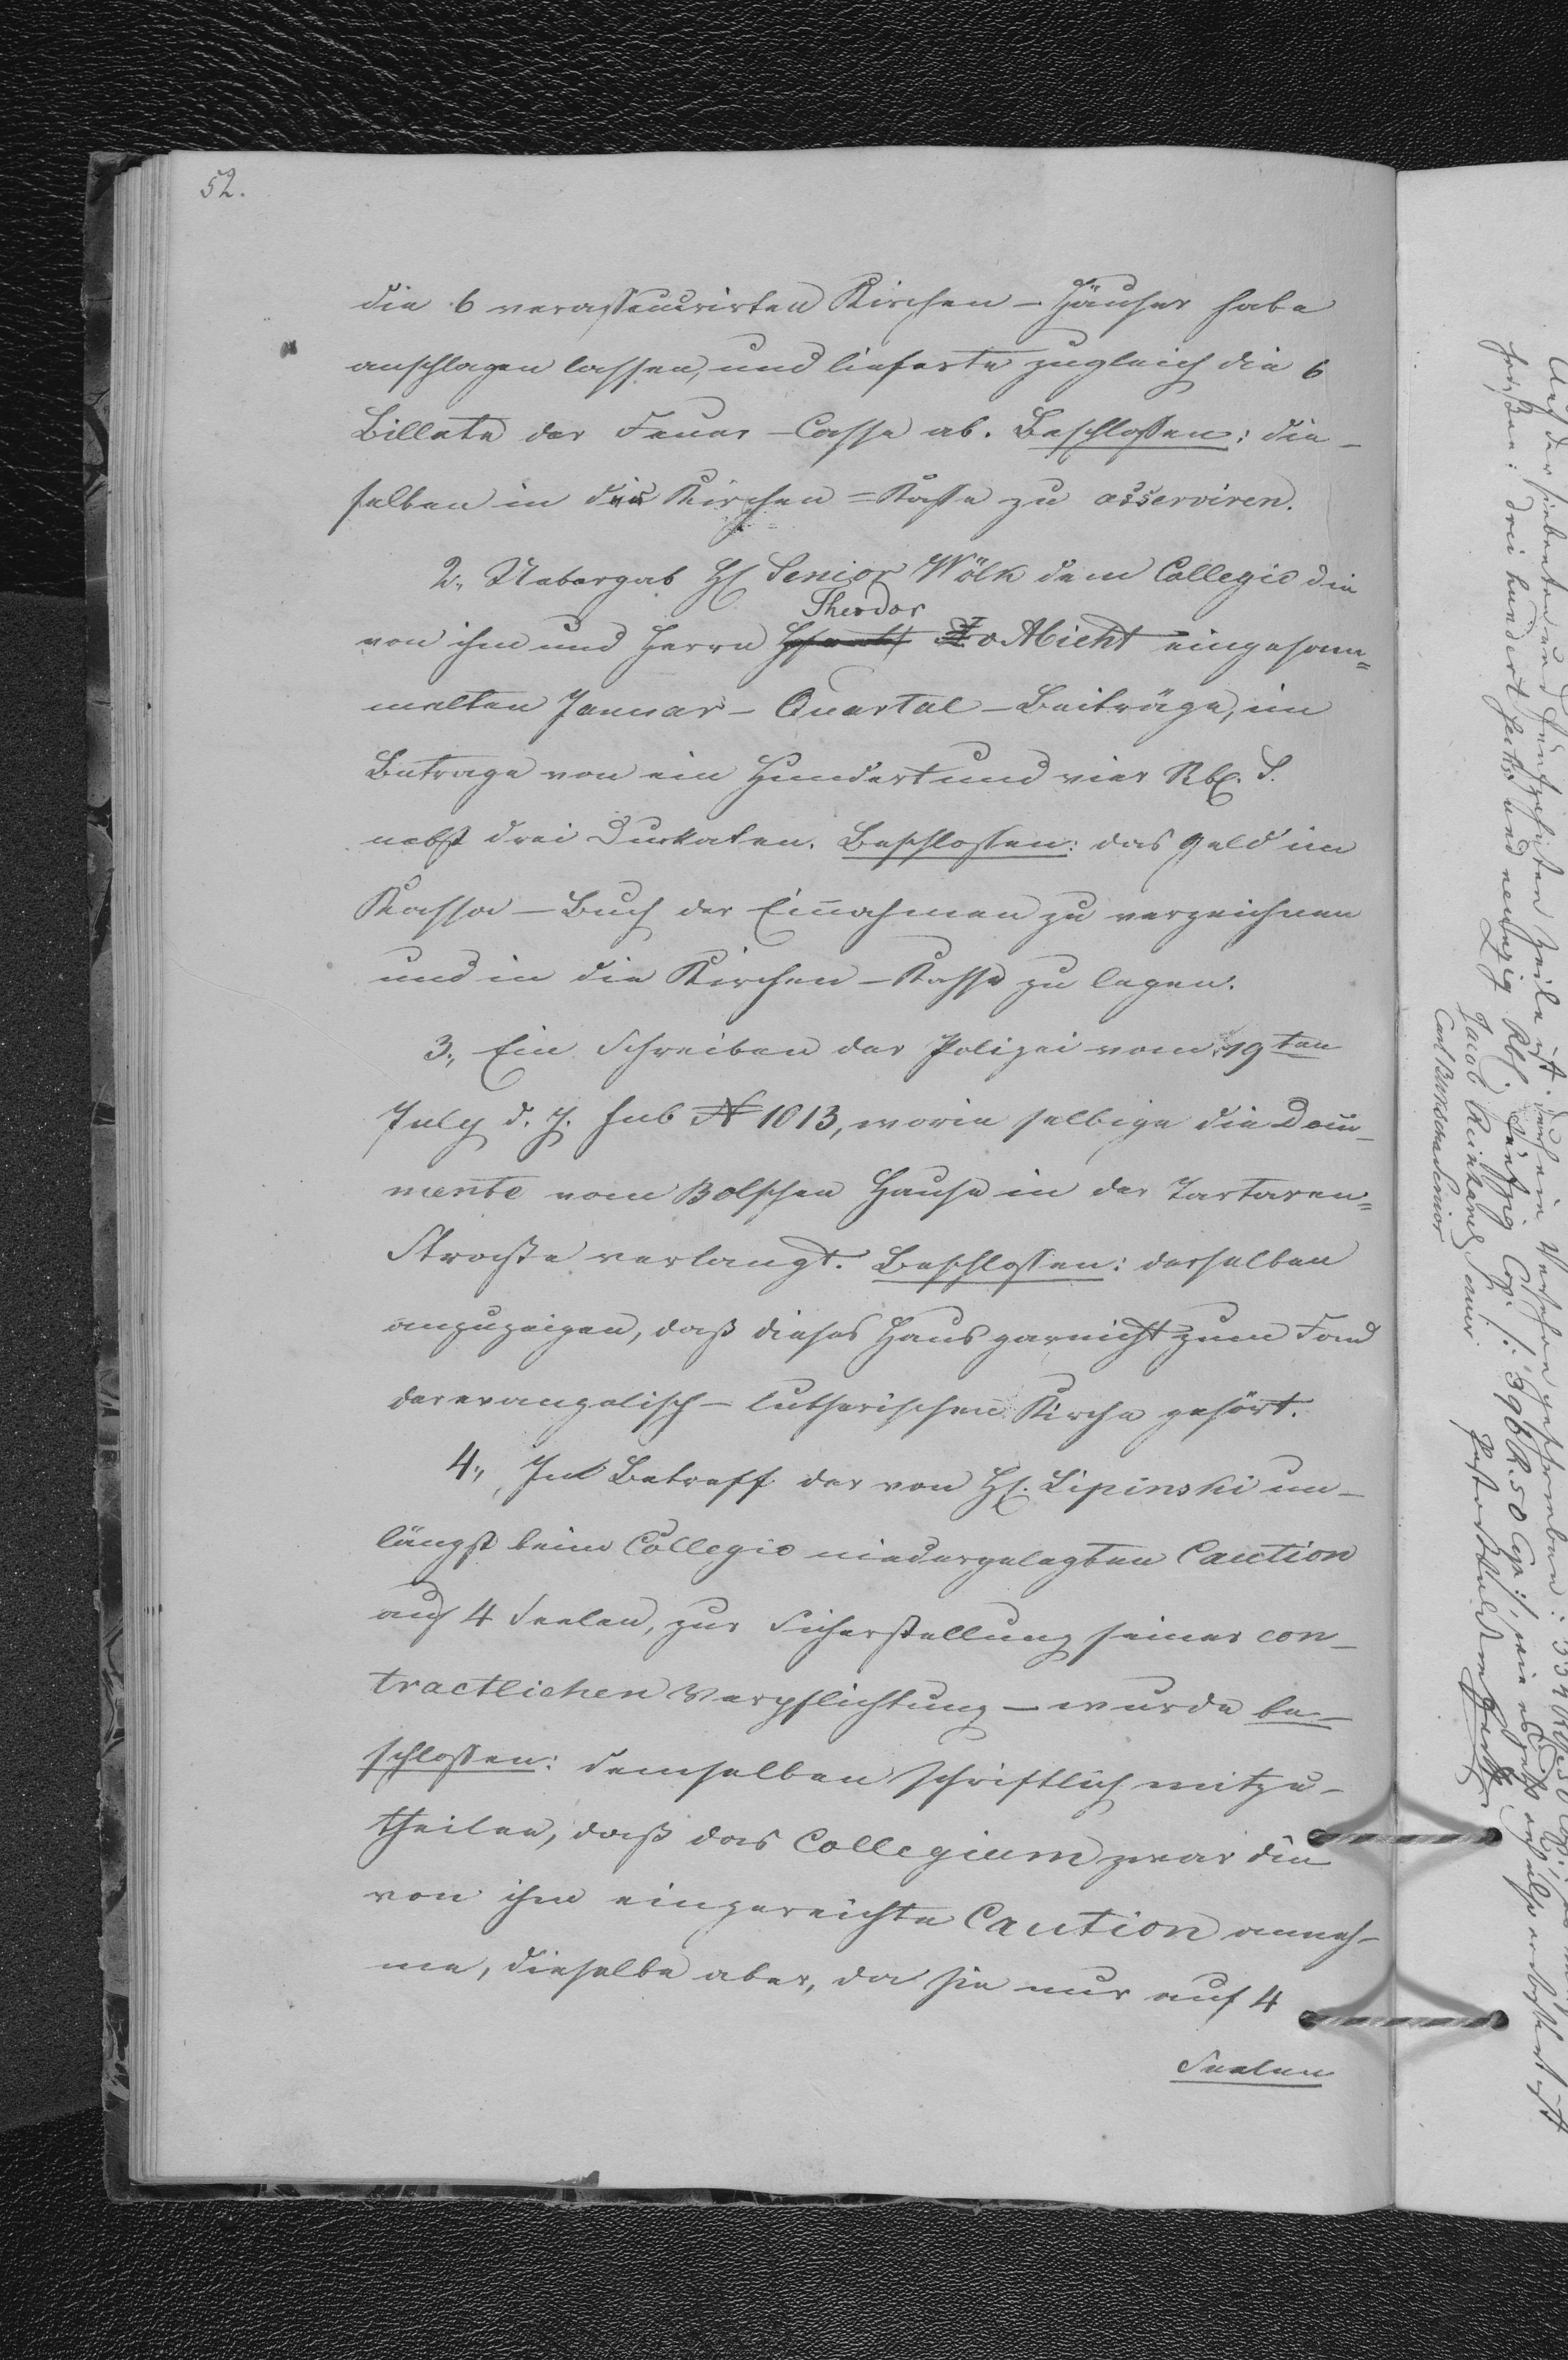 52.
die 6 verassecurirten Kirchen-Häuser habe
anschlagen lassen, und lieferte zugleich die 6
Billete der Feuer-Casse ab. Beschlossen: die-
selben in die Kirchen=Kasse zu asserviren.
2., Uebergab H. Senior Wölk dem Collegio die
Theodor
von ihm und Herrn v Abicht eingesam=
melten Januar-Quartal-Beiträge, im
Betrage von ein Hundert und vier Rbl. S.
nebst drei Duckaten. Beschlossen: das Geld im
Kassa-Buch der Einnahmen zu verzeichnen
und in die Kirchen-Kasse zu legen.
3., Ein Schreiben der Polizei vom 19ten
July d. J. sub N 1013, worin selbige die Docu-
mente vom Bolschen Hause in der Tartaren=
Strasse verlangt. Beschlossen: derselben
anzuzeigen, daß dieses Haus garnicht zum Fond
der evangelisch-lutherischen Kirche gehört.
4., In Betreff der von H. Lipinski un-
längst beim Collegio niedergelegten Caution
auf 4 Seelen, zur Sicherstellung seiner con-
tractlichen Verpflichtung - wurde be-
schlossen: demselben schriftlich mitzu-
theilen, daß das Collegium zwar die
von ihm eingereichte Caution anneh-
me, dieselbe aber, da sie nur auf 4
Seelen
Auf der siebenten und fünfzehnten Zeile ist durch ein Versehen geschrieben:
drei hundert sechs und neunzig Rbl fünfzig Cop. /: 396 R. 50 Cop :/,
Jacob Reinhard Senior
Carl Senior